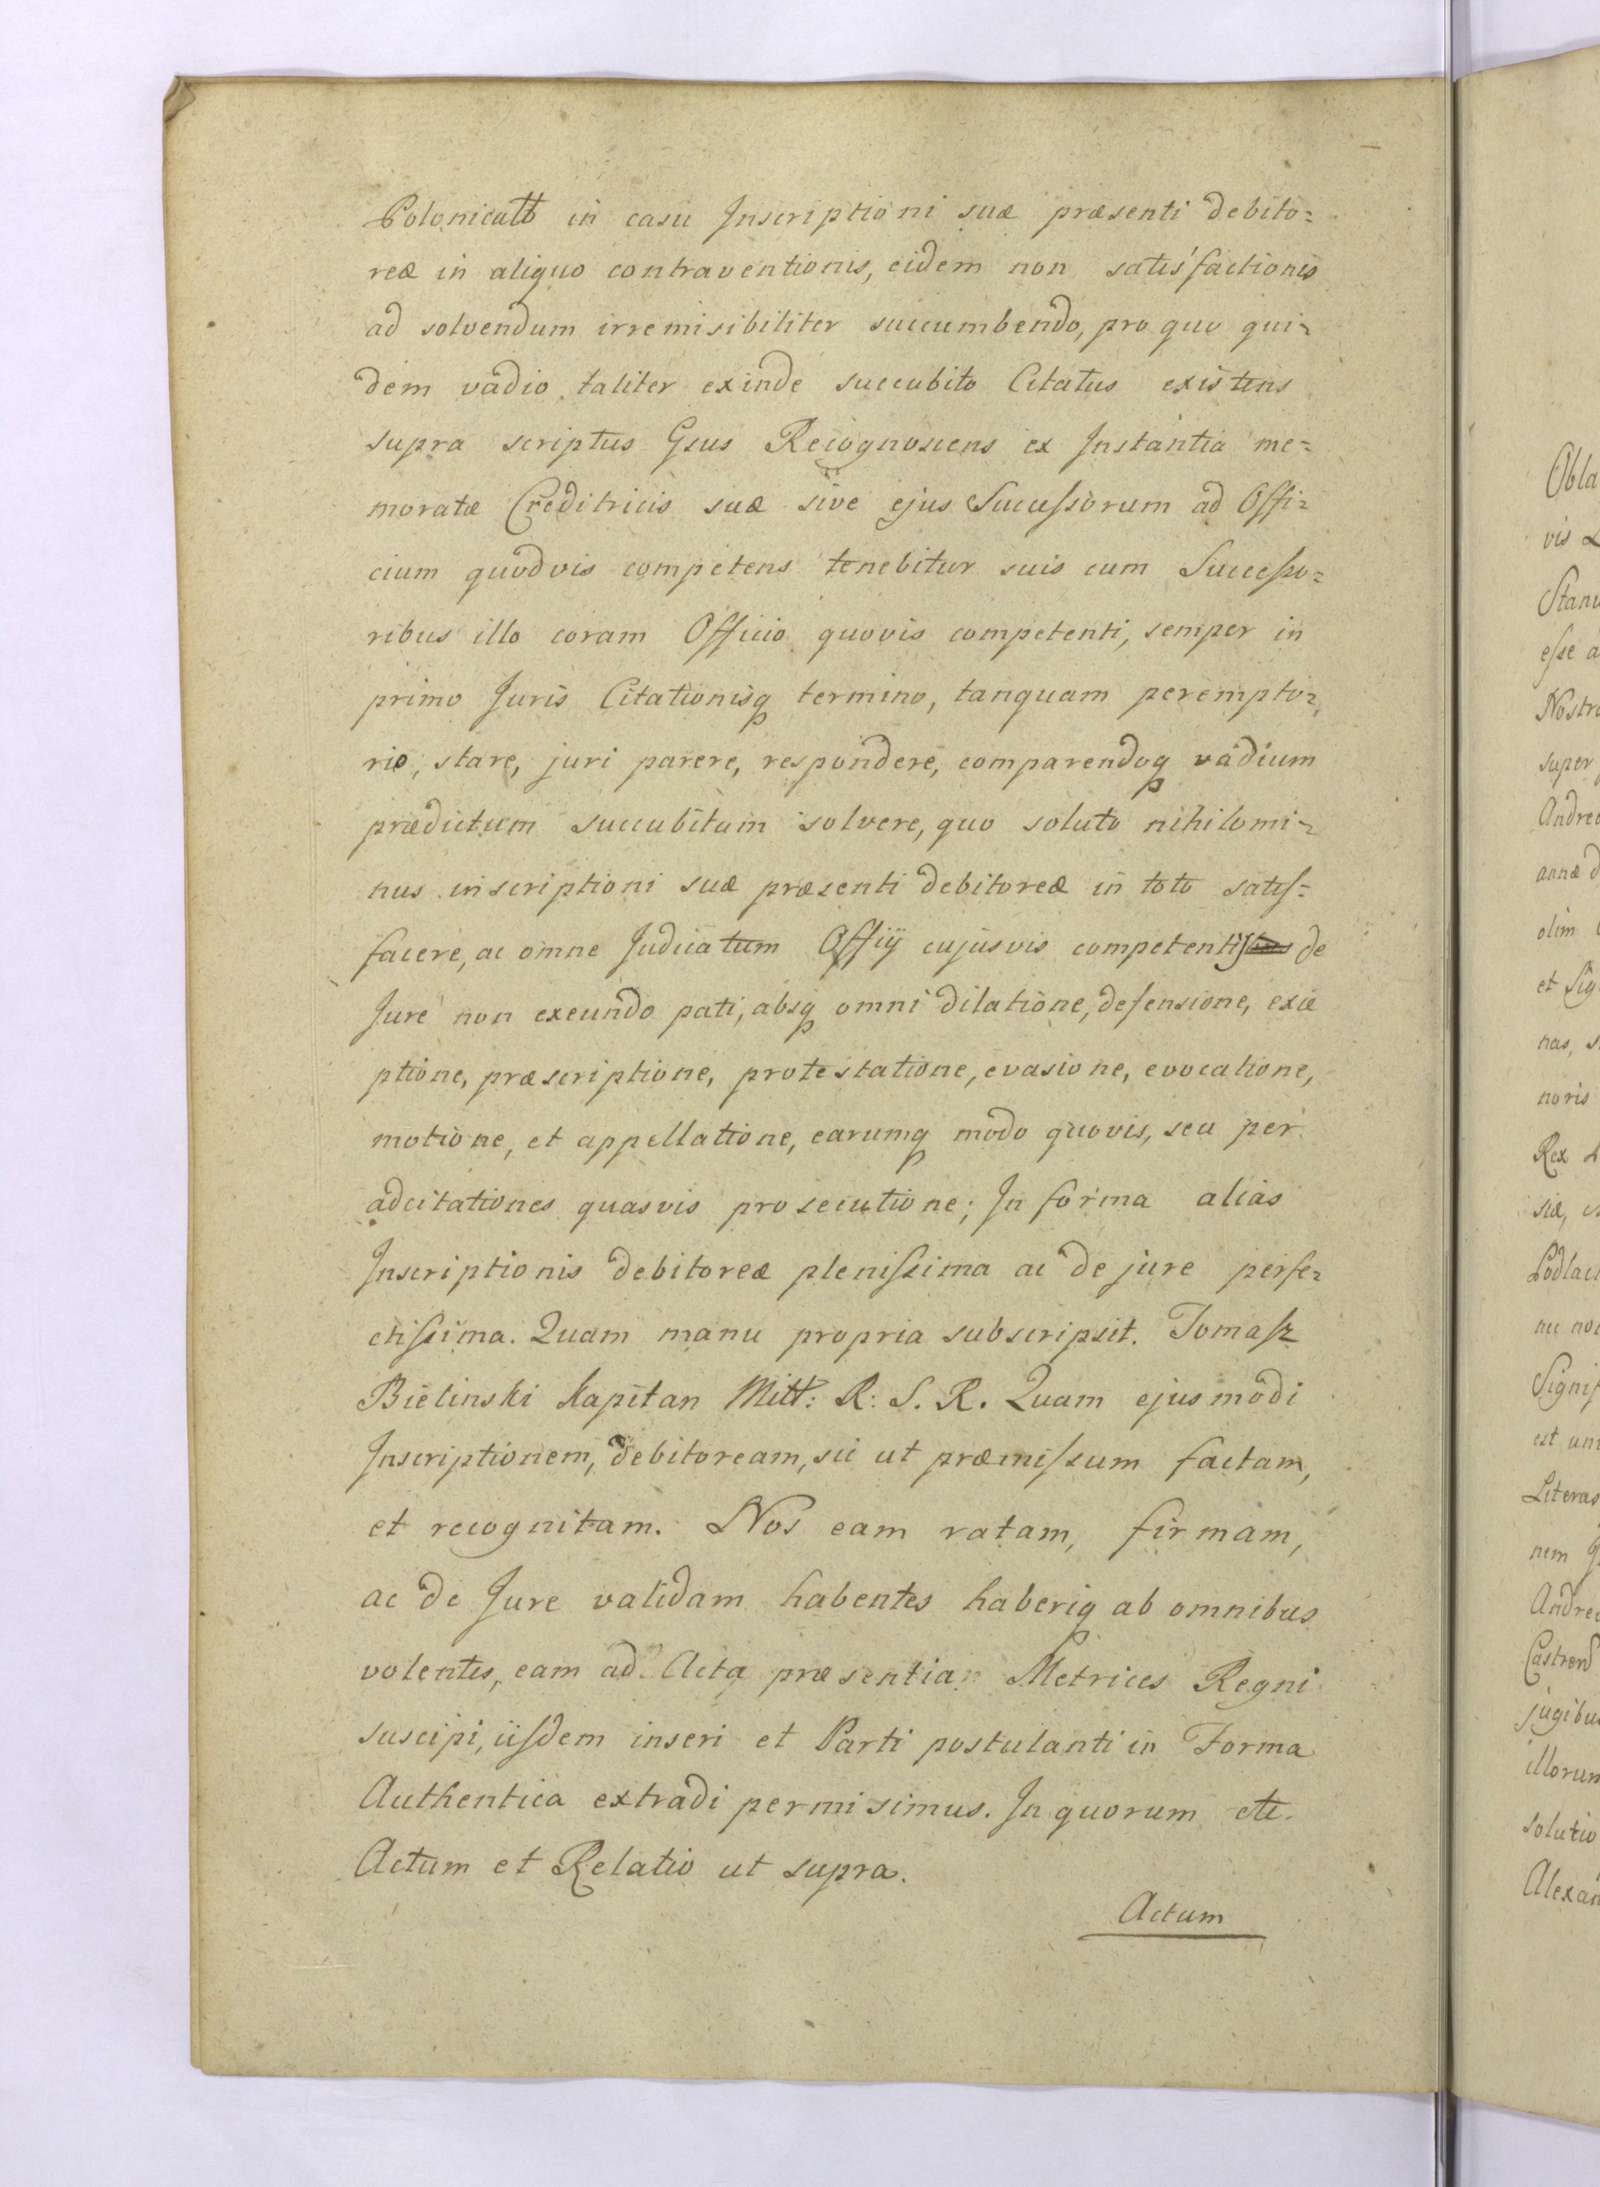 Polonicalb in casu Inscriptioni suæ præsenti debito=
reæ in aliquo contraventionis, eidem non satisfactionis
ad solvendum irremisibiliter succumbendo, pro quo qui=
dem vadio taliter exinde succubito Citatus existens
supra scriptus Gsus Recognoscens ex Instantia me=
moratæ Creditricis suæ sive ejus Sucessorum ad Offi=
cium quodvis competens tenebitur suis cum Successo=
ribus illo coram Officio quovis competenti, semper in
primo Juris Citationisq termino, tanquam perempto=
rio, stare, juri parere, respondere, comparendoq vadium
prædictum succubitum solvere, quo soluto nihilomi=
nus inscriptioni suæ præsenti debitoreæ in toto satis=
facere, ac omne Judicatum Offiÿ cujusvis competentis de
Jure non exeundo pati, absq omni dilatione, defensione, exce
ptione, præscriptione, protestatione, evasione, evocatione,
motione, et appellatione, earumq modo quovis, seu per
adcitationes quasvis prosecutione; In forma alias
Inscriptionis debitoreæ plenissima ac de jure perfe=
ctissima. Quam manu propria subscripsit. Tomasz
Bielinski Kapitan Mitt: R: S. R. Quam ejusmodi
Inscriptionem, debitoream, sic ut præmissum factam,
et recognitam. Nos eam ratam, firmam,
ac de Jure validam habentes haberiq ab omnibus
volentes, eam ad Acta præsentia Metrices Regni
suscipi, iisdem inseri et Parti postulanti in Forma
Authentica extradi permisimus. In quorum etc.
Actum et Relatio ut supra.
Actum
Obla
vis
Stani
esse a
Nostra
super
Andrea
annæ d
olim
et Sig
nas, s
noris
Rex
siæ,
Podlac
nec non
Signif
est
Literas
nem
Andrea
Castren
jugibus
illorum
solutio
Alexan